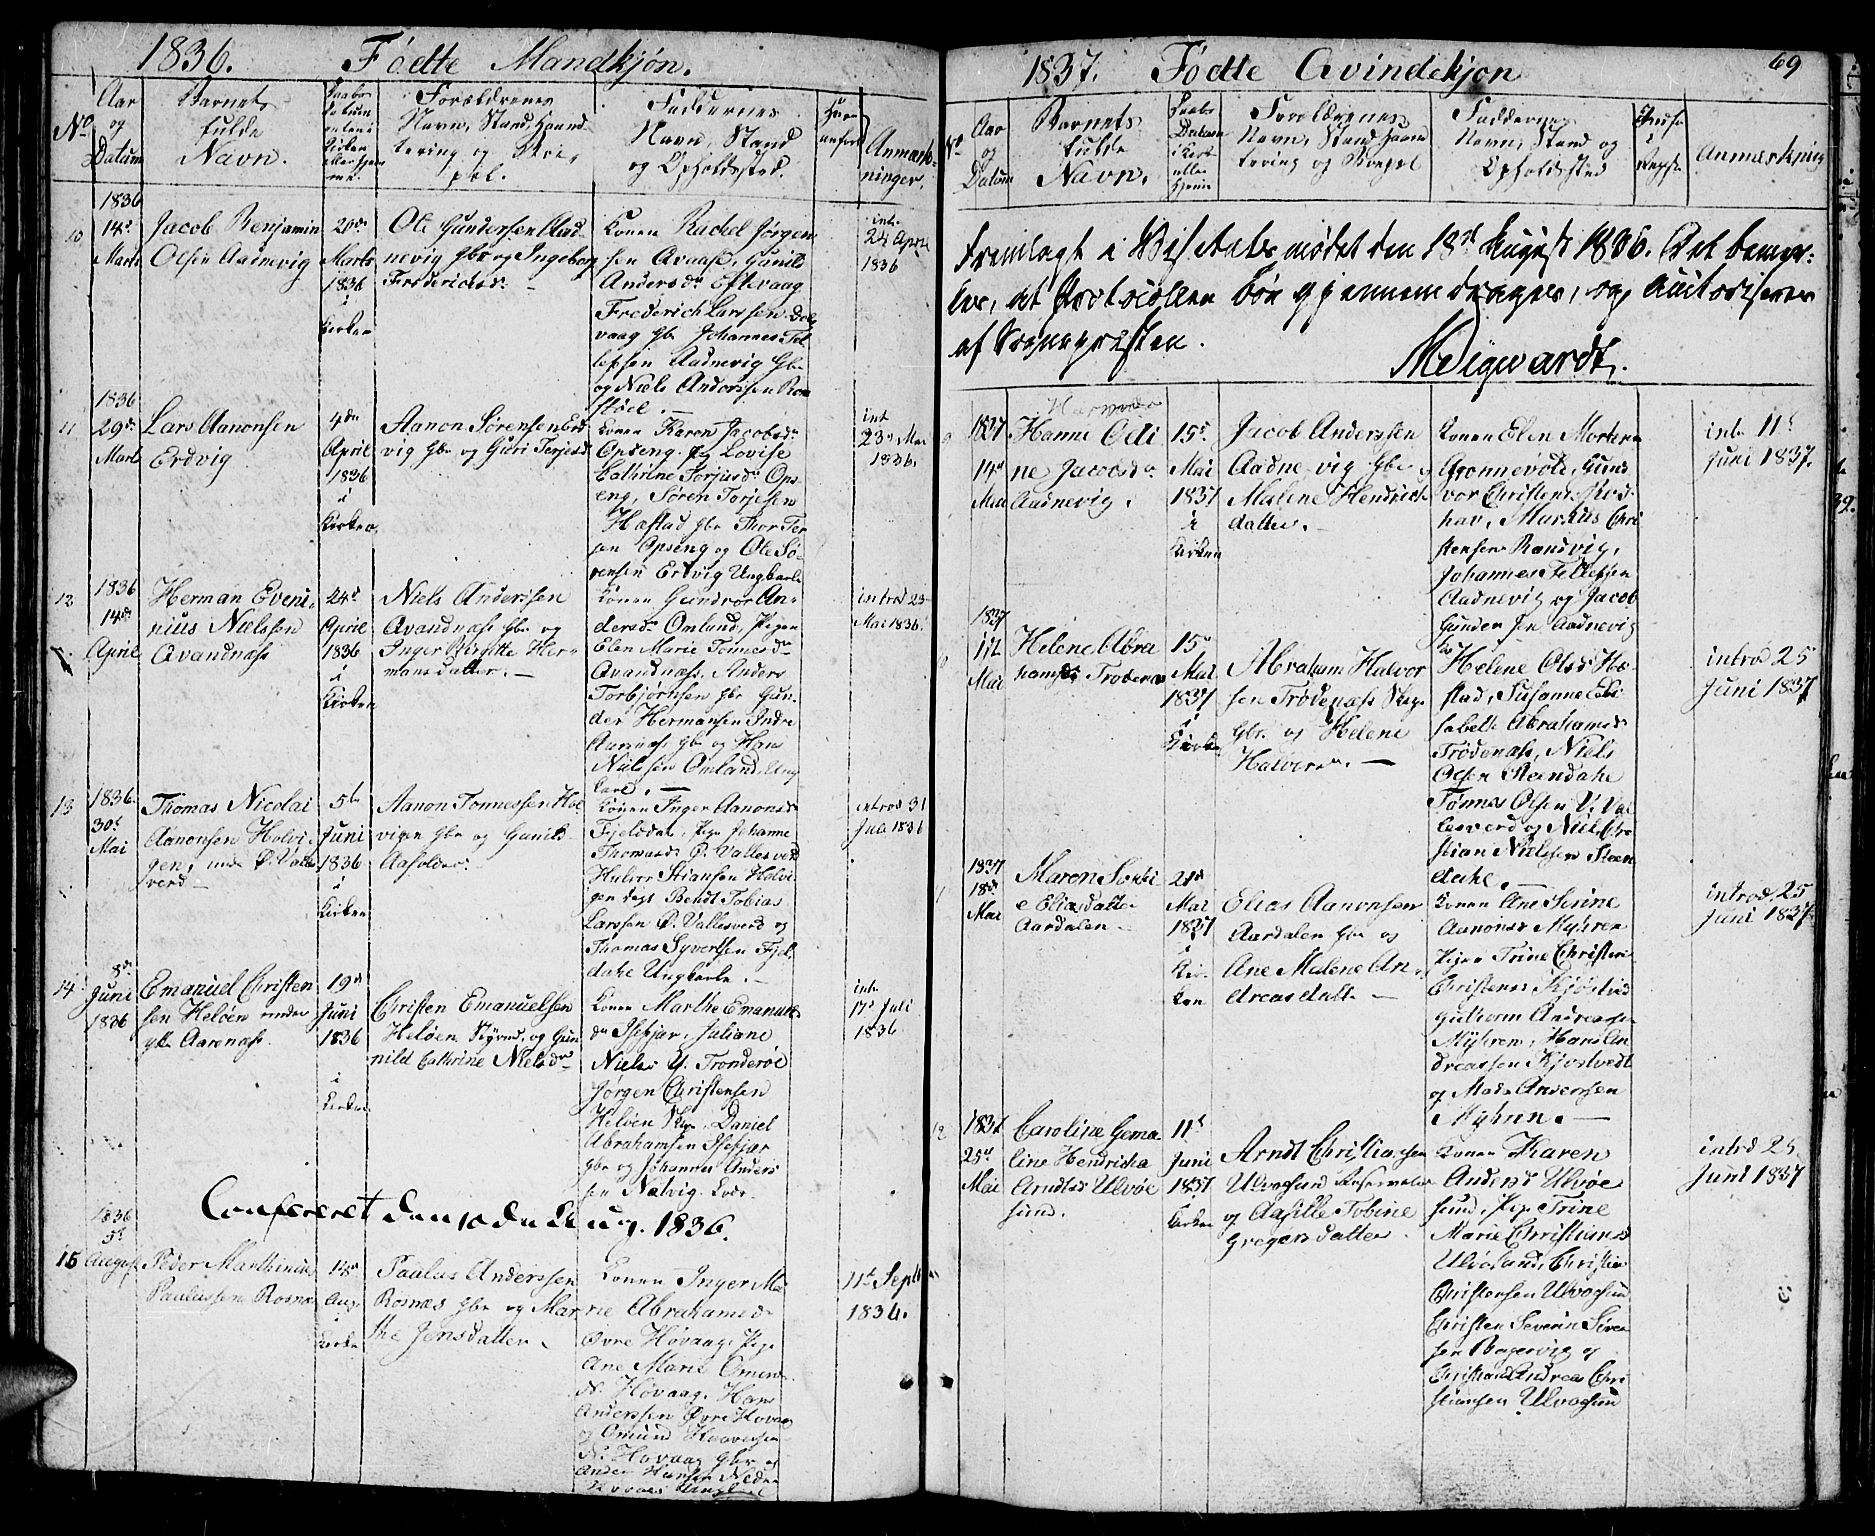 1836. Födte Mandkjön.
No
Aar
og
Datum
Barnets
fulde
Navn.
Forældrenes
Navn, Stand, Haand
tering og Boe
pæl.
Faddernes
Navn, Stand
og Opholdssted.
Anmærk
ninger.
1836
10
14de
Marts
Jacob Benjamin
Olsen Aadnevig
20de
Marts
1836
i
Kirken
Ole Gundersen Aad
nevig Gbr og Ingeborg
Frederichsd.
Konen Rachel Jörgen
sen Qvaase, Gunild
Andersdr Eftevaag
Frederich Larssen Dal
vaag Gbr Johannes Tel
lefsen Aadnevig Gbr
og Niels Anderssen Rom
stöel.
int.
24 April
1836
1836
11
29de
Marts
Lars Aanonsen
Erdvig
4de
April
1836
i
Kirken
Aanon Sörensen Erd
vig Gbr og Guri Terjesd
Konen Karen Jacobsdr
Opseng, Pg Lovise
Cathrine Torjusdr Ops
eng, Sören Torjesen
Hastad Gbr Thor Ter
sen Opseng og Ole Sö
rensen Ertvig Ungkarle
int
23de Mai
1836.
12
1836
14de
April
Herman Eveni
nius Nielssen
Qvandnæss
24de
April
1836
i
Kirken
Niels Anderssen
Qvandnæss Gbr og
Inger Birgitte Her
mansdatter.
Konen Gundvor An
dersdr Omland, Pigen
Elen Marie Tönnesdr
Qvandnæss, Anders
Torbjörnsen Gbr Gun
der Hermansen Indre
Aarnæss Gbr og Hans
Nielssen Omland Ung
karl.
introd 23
Mai 1836.
13
1836.
30de
Mai
Thomas Nicolai
Aanonsen Holvi
gen, under Ö. Valles
verd
5te
Juni
1836
i
Kirken
Aanon Tönnessen Hol
vigen Gbr og Gunild
Aasoldsd.
Konen Inger Aanonsdr
Fjelddal, Pige Johanne
Thomasdr Ö. Vallesverd
Halvor Stiansen Holvi
gen dags Bendt Tobias
Larssen Ö. Vallesverd og
Thomas Syvertsen Fjel
dahl Ungkarle.
introd 31
Juli 1836
14
8de
Juni
1836
Emanuel Christen
sen Helöen under
ytr Aarnæss.
19de
Juni
1836
i
Kirken
Christen Emanuelsen
Helöen Styrmd, og Gun
nild Cathrine Nielsdr
Konen Marthe Emanuels
dr Isefjær, Juliane
Nielsdr Y. Tronderöe
Jörgen Christensen
Helöen Skp, Daniel
Abrahamsen Isefjær
Gbr og Johannes Anders
sen Nætvig.
int.
17de Juli
1836
Confereret den 10de Aug. 1836.
1836
5te
15
August
Peder Marthinius
Paulussen Rosnæs
14de
Aug.
i
Kirken
Paulus Anderssen
Rosnæs Gbr og Mar
the Jensdatter.
Konen Inger Ma
rie Abrahamsdr
Övre Hövaag, Pige
Ane Marie Omunds
N. Hövaag, Hans
Anderssen Övre Hövaag
og Omund Haaversen
N. Hövaag Gbr og
Anders Hansen Nedre
Hövaag Ungkarl
11te Septb
1836.
1837. Födte Qvindekjön 69
No
Aar
og
Datum
Barnets
fulde
Navn.
Daabs
Datum
i Kirk
eller
Hjem
Forældrenes
Navn, Stand, Haand
tering og Boepæl
Faddernes
Navn, Stand og
Opholdssted
Anmærkning
Fremlagt i Visitatsmødet den 18de August 1836. Det bemær-
kes, at Protocollen bør gjennemdrages, og autoriseres
af Sognepresten.
Meigwardt.
9
1837
14de
Mai
Hanne Oeli
ne Jacobsdr
Aadnevig.
15de
Mai
1837
i
Kirken
Jacob Anderssen
Aadnevig Gbr og
Malene Hendrichs
datter.
Konen Elen Mortens
Grönnevold, Gund
vor Christensdr Kos
hav, Markus Chri
stensen Randvig,
Johannes Tellefsen
Aadnevig og Jacob
Gundersen Aadnevig
int. 11te
Juni 1837.
1837
10
Mai
Helene Abra
hamsdr Trödenæs
15de
Mai
1837
i
Kirken
Abraham Halvor
sen Trödenæss Skp
Gbr. og Helene
Halvorsdr.
Helene Olsdr Ho
stad, Susanne Eli
sabeth Abrahamsdr
Trödenæss, Niels
Olsen Steendahl
Tönnes Olsen V. Val
lesverd og Niels Chri
stian Nielssen Steen
dahl.
introd 25
Juni 1837
11
1837
18de
Mai
Maren Sophi
e Eliasdatter
Aardalen
21de
Mai
1837
i
Kir
ken
Elias Aanonsen
Aardalen Gbr og
Ane Malene An
dreasdatter
Konen Ane Serine
Aanonsdr Myhren
Pigen Trine Christine
Christensdr Kjöstved
Guthorm Andreassen
Myhren, Hans An
dreassen Kjöstvedt
og Mads Anderssen
Myhren.
introd. 25
Juni 1837
12
1837
25de
Mai
Caroline Gema
line Hendricka
Arndtsdr Ulvöe
sund.
11te
Juni
1837
Kirken
Arndt Christiansen
Ulvøesund
og Aasille Tobine
Gregersdatter.
Konen Karen
Andersdr Ulvöe
sund, Pige Trine
Marie Christiansdr
Ulvösund, Christen
Christensen Ulvøsund
Christen Severin Siver
sen Bagervig og
Christian Andreas Chri
stiansen Ulvøsund
introd 25
Juni 1837